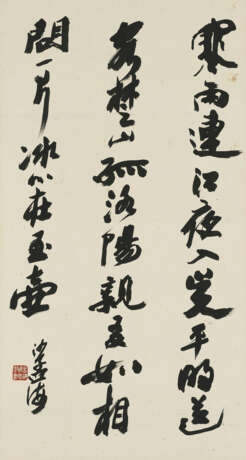 寒雨連江夜入吳平明送
客楚山孤洛陽親友如相
問一片冰心在玉壺
沙孟海